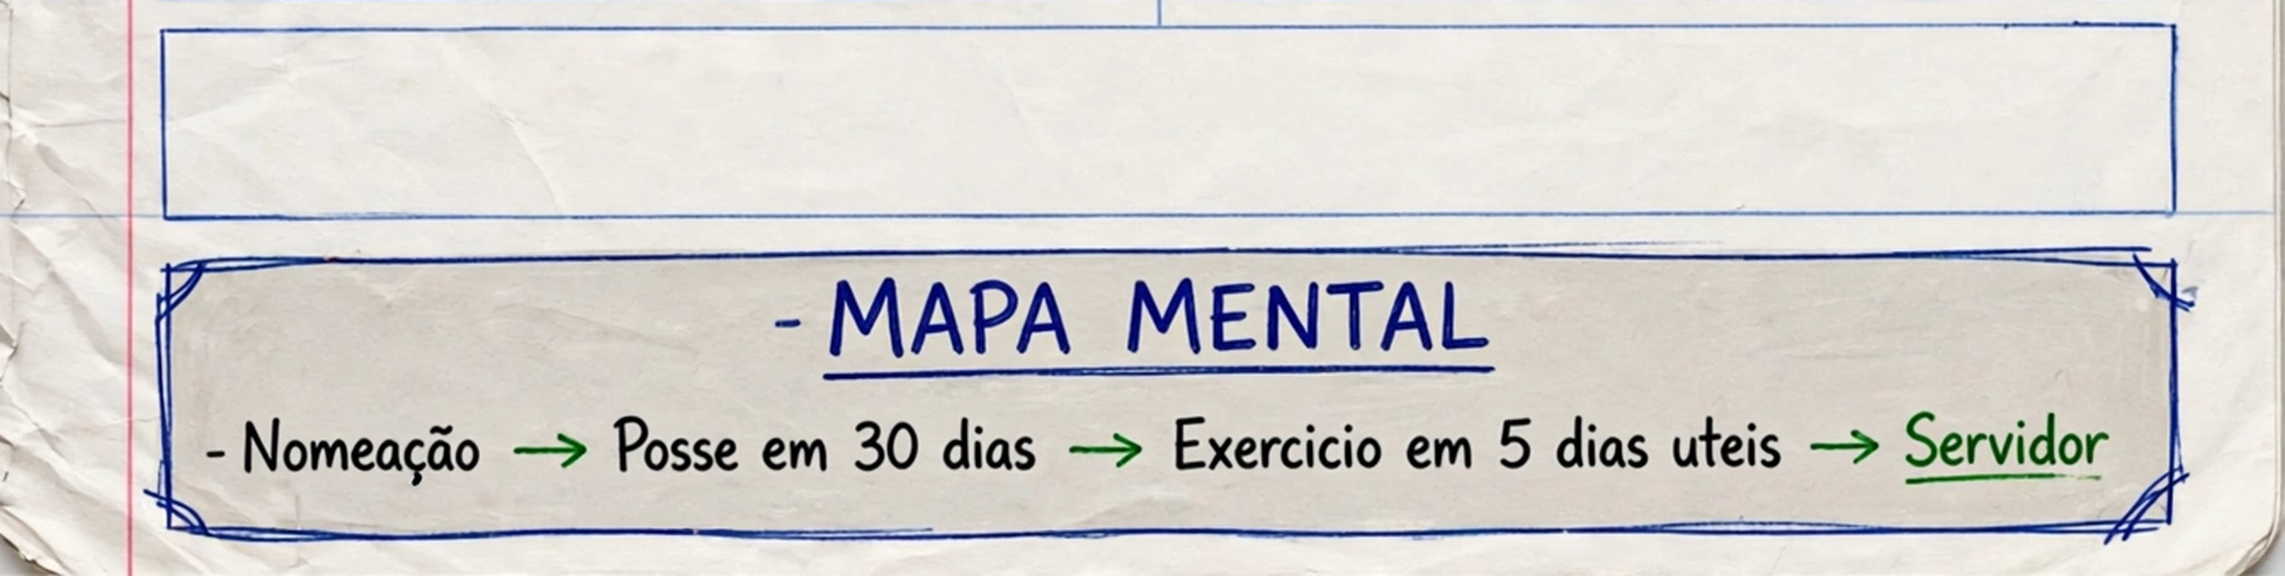 - MAPA MENTAL
- Nomeação → Posse em 30 dias → Exercicio em 5 dias uteis → Servidor